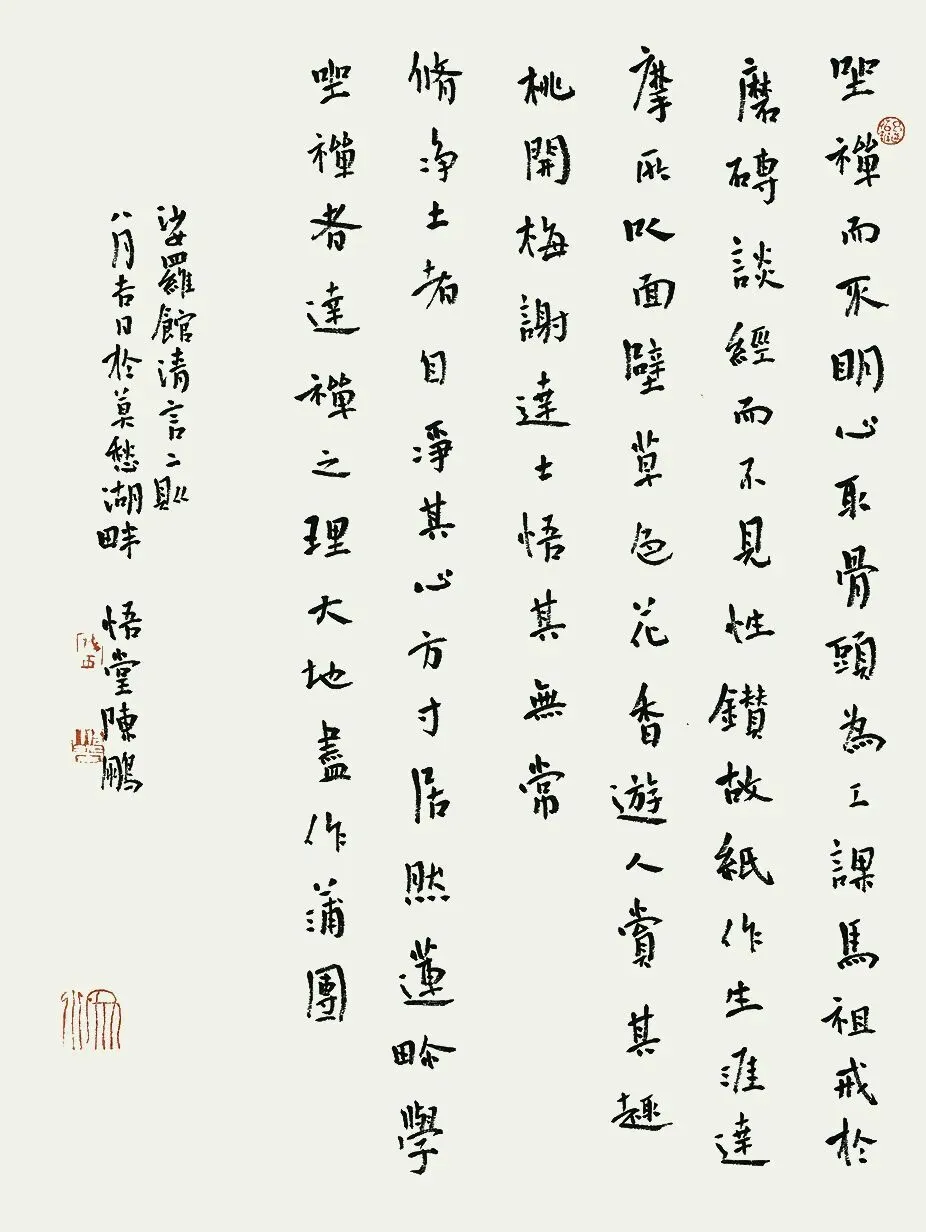 坐禪而不明心取骨頭為工課馬祖戒於
磨磚談經而不見性鑽故紙作生涯達
摩所以面壁草色花香遊人賞其趣
桃開梅謝達士悟其無常
脩淨土者自淨其心方寸居然蓮畍學
坐禪者達禪之理大地盡作蒲團
娑羅館清言二則
八月吉日於莫愁湖畔 悟堂陳鵬